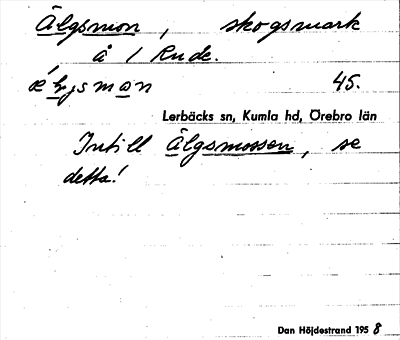 Älgsmon, skogsmark
å 1 Rude.
45.
Lerbäcks sn, Kumla hd, Örebro län
Intill Älgsmossen, se
detta!
Dan Höjdestrand 1958